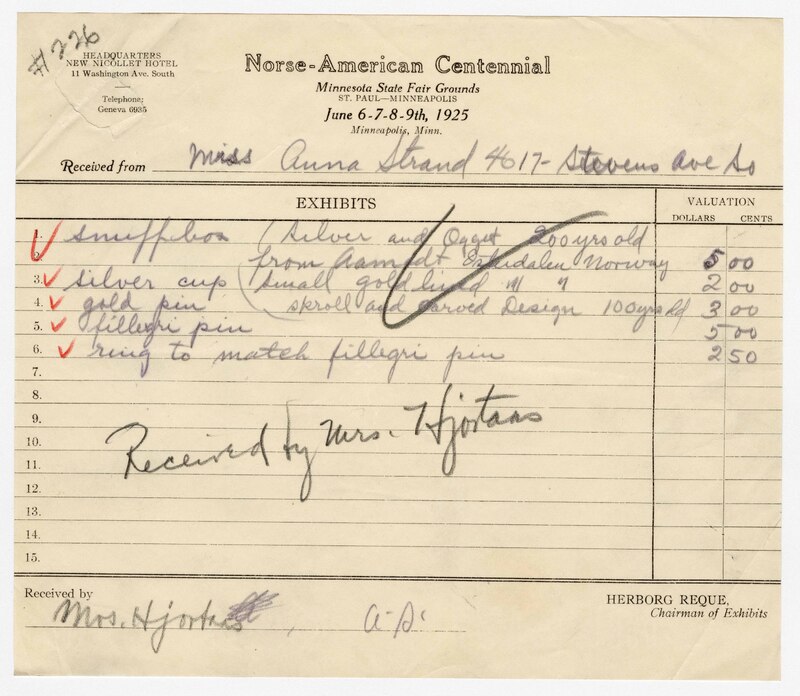 #226
HEADQUARTERS
NEW NICOLLET HOTEL
11 Washington Ave. South
Telephone:
Geneva 6935
Norse-American Centennial
Minnesota State Fair Grounds
ST. PAUL—MINNEAPOLIS
June 6-7-8-9th, 1925
Minneapolis, Minn.
Received from Miss Anna Strand 4017- Stevens Ave So
EXHIBITS
VALUATION
DOLLARS CENTS
1. Snuffbox (Silver and 200 yrs old
2. from Norway 5 00
3. silver cup small gold lined " " 2 00
4. gold pin skroll and carved Design 100 yrs old 3 00
5. fillegri pin 5 00
6. ring to match fillegri pin 2 50
7.
8.
9.
10.
11.
12.
13.
14.
15.
Received by Mrs. Hjortaas
Received by
Mrs. Hjortaas, A.S.
HERBORG REQUE,
Chairman of Exhibits